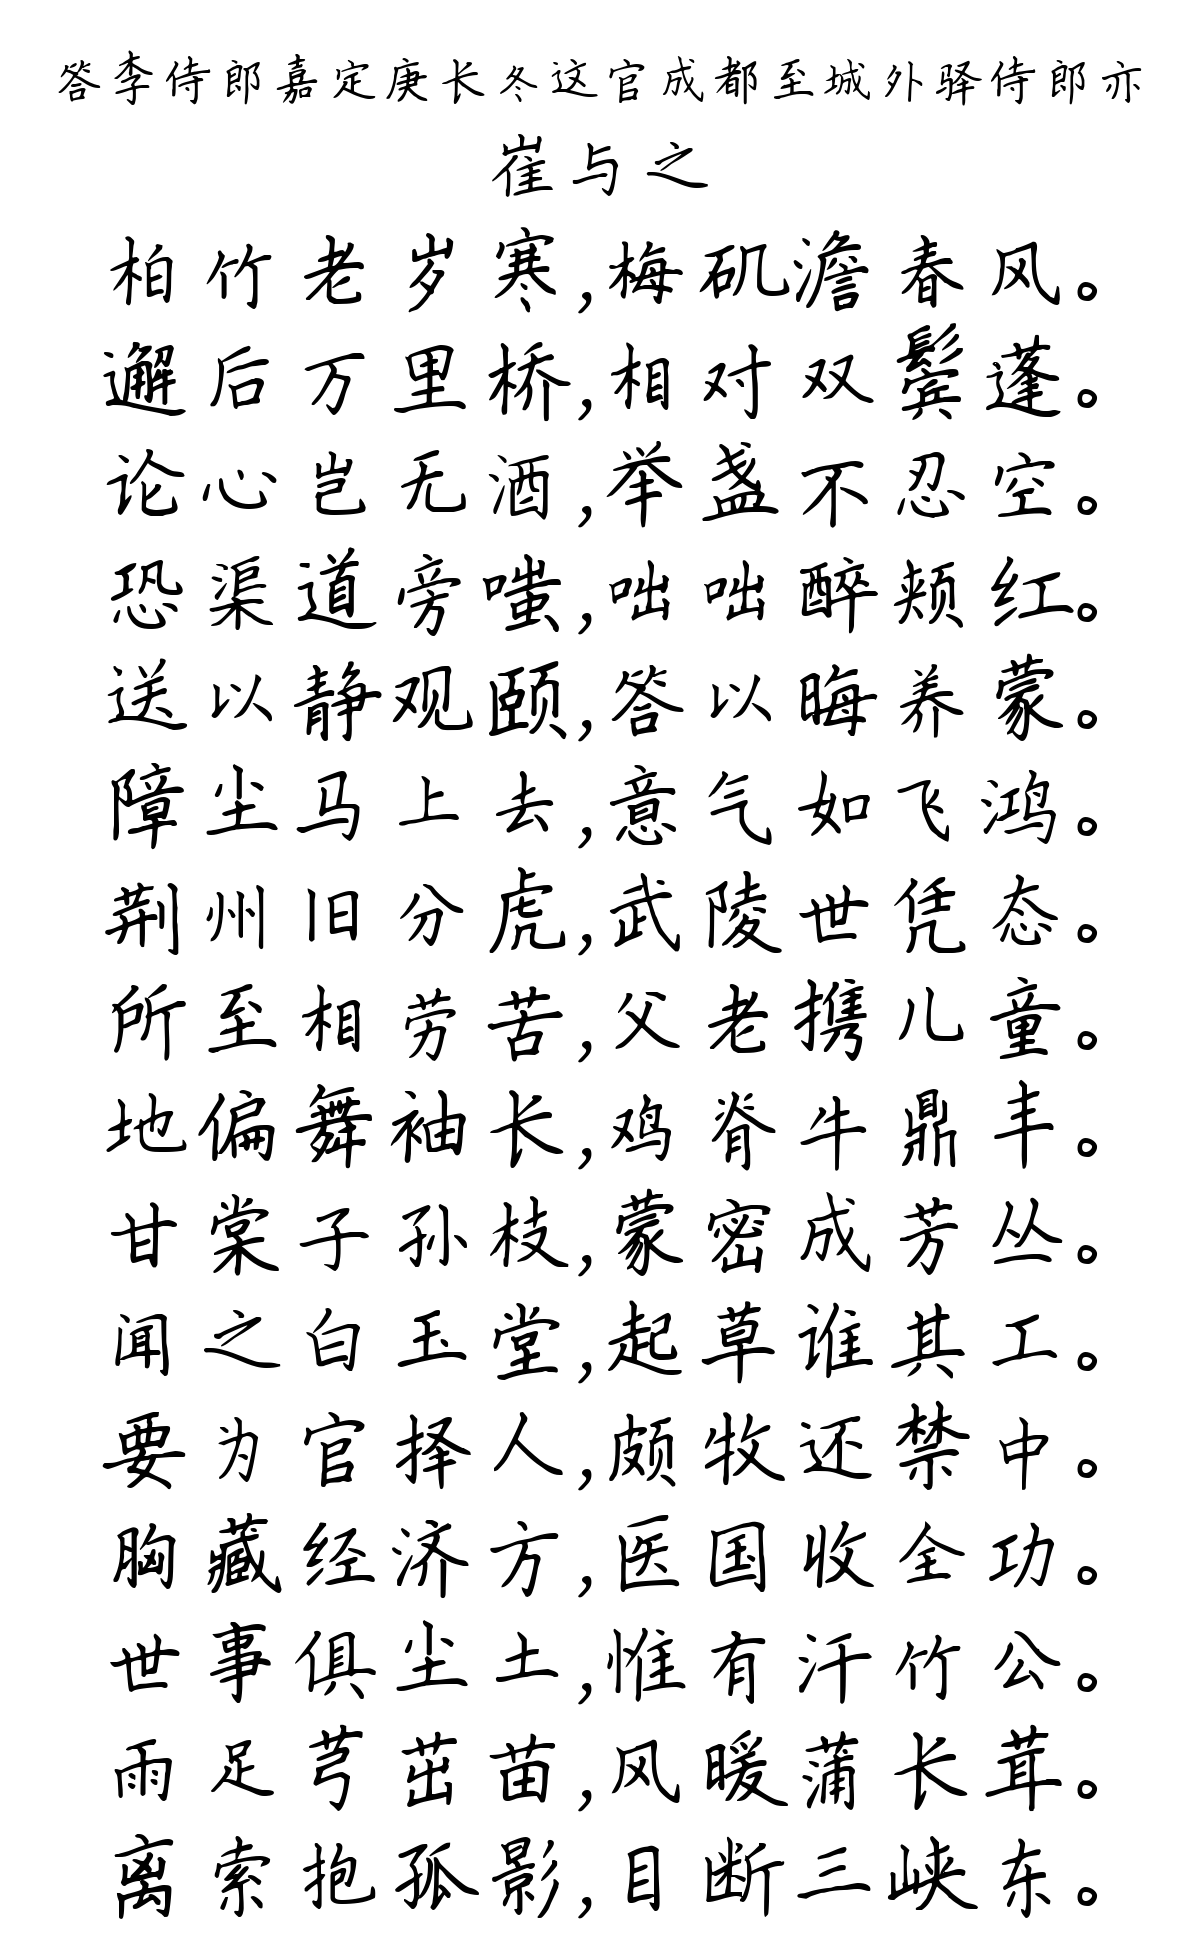 答李侍郎嘉定庚长冬这官成都至城外驿侍郎亦
崔与之
柏竹老岁寒,梅矶澹春风。
邂后万里桥,相对双鬓蓬。
论心岂无酒,举盏不忍空。
恐渠道旁嗤,咄咄醉颊红。
送以静观颐,答以晦养蒙。
障尘马上去,意气如飞鸿。
荆州旧分虎,武陵世凭态。
所至相劳苦,父老携儿童。
地偏舞袖长,鸡脊牛鼎丰。
甘棠子孙枝,蒙密成芳丛。
闻之白玉堂,起草谁其工。
要为官择人,颇牧还禁中。
胸藏经济方,医国收全功。
世事俱尘土,惟有汗竹公。
雨足芎茁苗,风暖蒲长茸。
离索抱孤影,目断三峡东。